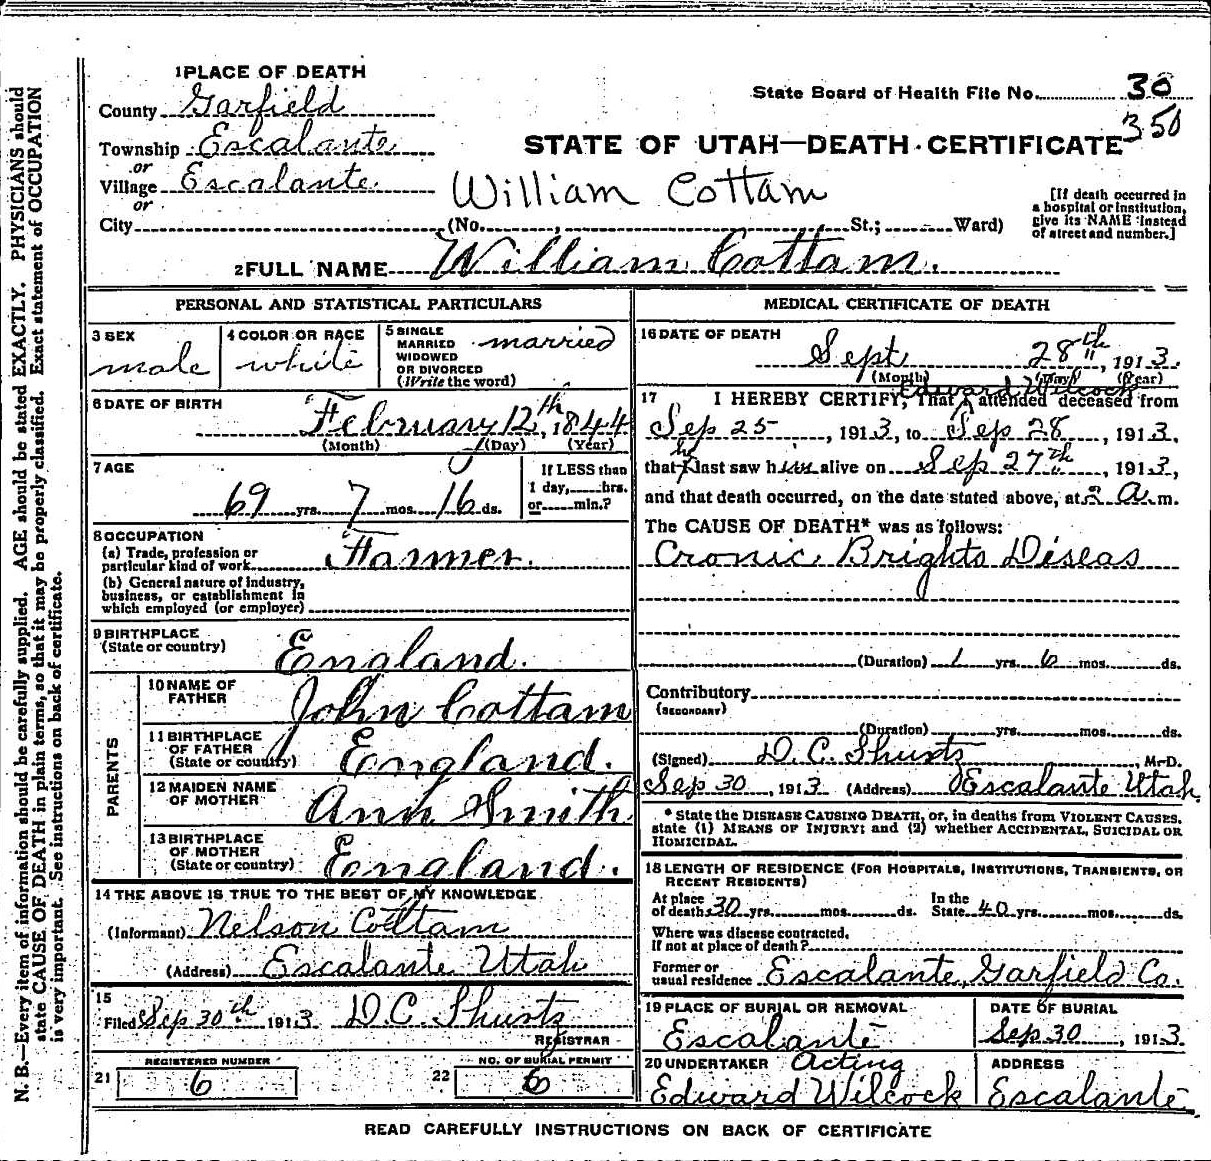 1 PLACE OF DEATH
County Garfield
State Board of Health File No. 30
350
Township Escalante
STATE OF UTAH—DEATH CERTIFICATE
or
Village Escalante
William Cottam
or
City (No. , St.; Ward)
[If death occurred in a hospital or institution, give its NAME instead of street and number.]
2 FULL NAME William Cottam.
PERSONAL AND STATISTICAL PARTICULARS
3 SEX
male
4 COLOR OR RACE
white
5 SINGLE
MARRIED
WIDOWED
OR DIVORCED
(Write the word)
married
6 DATE OF BIRTH
February 12th, 1844
(Month) (Day) (Year)
7 AGE
69 yrs. 7 mos. 16 ds.
If LESS than
1 day, hrs.
or min.?
8 OCCUPATION
(a) Trade, profession or
particular kind of work Farmer.
(b) General nature of industry,
business, or establishment in
which employed (or employer)
9 BIRTHPLACE
(State or country) England.
PARENTS
10 NAME OF
FATHER John Cottam
11 BIRTHPLACE
OF FATHER
(State or country) England.
12 MAIDEN NAME
OF MOTHER Ann Smith
13 BIRTHPLACE
OF MOTHER
(State or country) England.
14 THE ABOVE IS TRUE TO THE BEST OF MY KNOWLEDGE
(Informant) Nelson Cottam
(Address) Escalante Utah
15
Filed Sep 30th 1913 D.C. Shurtz
REGISTRAR
REGISTERED NUMBER
21 6
NO. OF BURIAL PERMIT
22 6
MEDICAL CERTIFICATE OF DEATH
16 DATE OF DEATH
Sept 28th, 1913.
(Month) (Day) (Year)
Edward Wilcock
17 I HEREBY CERTIFY, That I attended deceased from
Sep 25, 1913, to Sep 28, 1913.
that he last saw him alive on Sep 27th, 1913,
and that death occurred, on the date stated above, at 2 a.m.
The CAUSE OF DEATH* was as follows:
Cronic Brights Diseas
(Duration) 1 yrs. 6 mos. ds.
Contributory
(SECONDARY)
(Duration) yrs. mos. ds.
(Signed) D.C. Shurtz, M.D.
Sep 30, 1913 (Address) Escalante Utah.
* State the DISEASE CAUSING DEATH, or, in deaths from VIOLENT CAUSES,
state (1) MEANS OF INJURY; and (2) whether ACCIDENTAL, SUICIDAL OR
HOMICIDAL.
18 LENGTH OF RESIDENCE (FOR HOSPITALS, INSTITUTIONS, TRANSIENTS, OR
RECENT RESIDENTS)
At place
of death 30 yrs. mos. ds.
In the
State 40 yrs. mos. ds.
Where was disease contracted,
If not at place of death?
Former or
usual residence Escalante, Garfield Co.
19 PLACE OF BURIAL OR REMOVAL
Escalante
DATE OF BURIAL
Sep 30, 1913.
20 UNDERTAKER Acting
Edward Wilcock
ADDRESS
Escalante
READ CAREFULLY INSTRUCTIONS ON BACK OF CERTIFICATE
N. B.—Every item of information should be carefully supplied. AGE should be stated EXACTLY. PHYSICIANS should
state CAUSE OF DEATH in plain terms, so that it may be properly classified. Exact statement of OCCUPATION
is very important. See instructions on back of certificate.